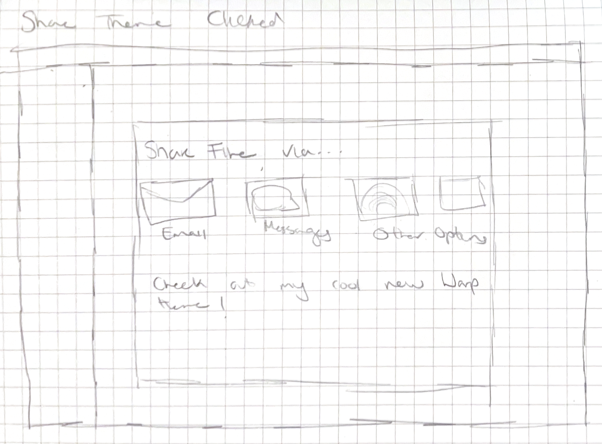 Share Theme Clicked
Share File via...
Email Messages Other Options
Check out my cool new Warp
theme!